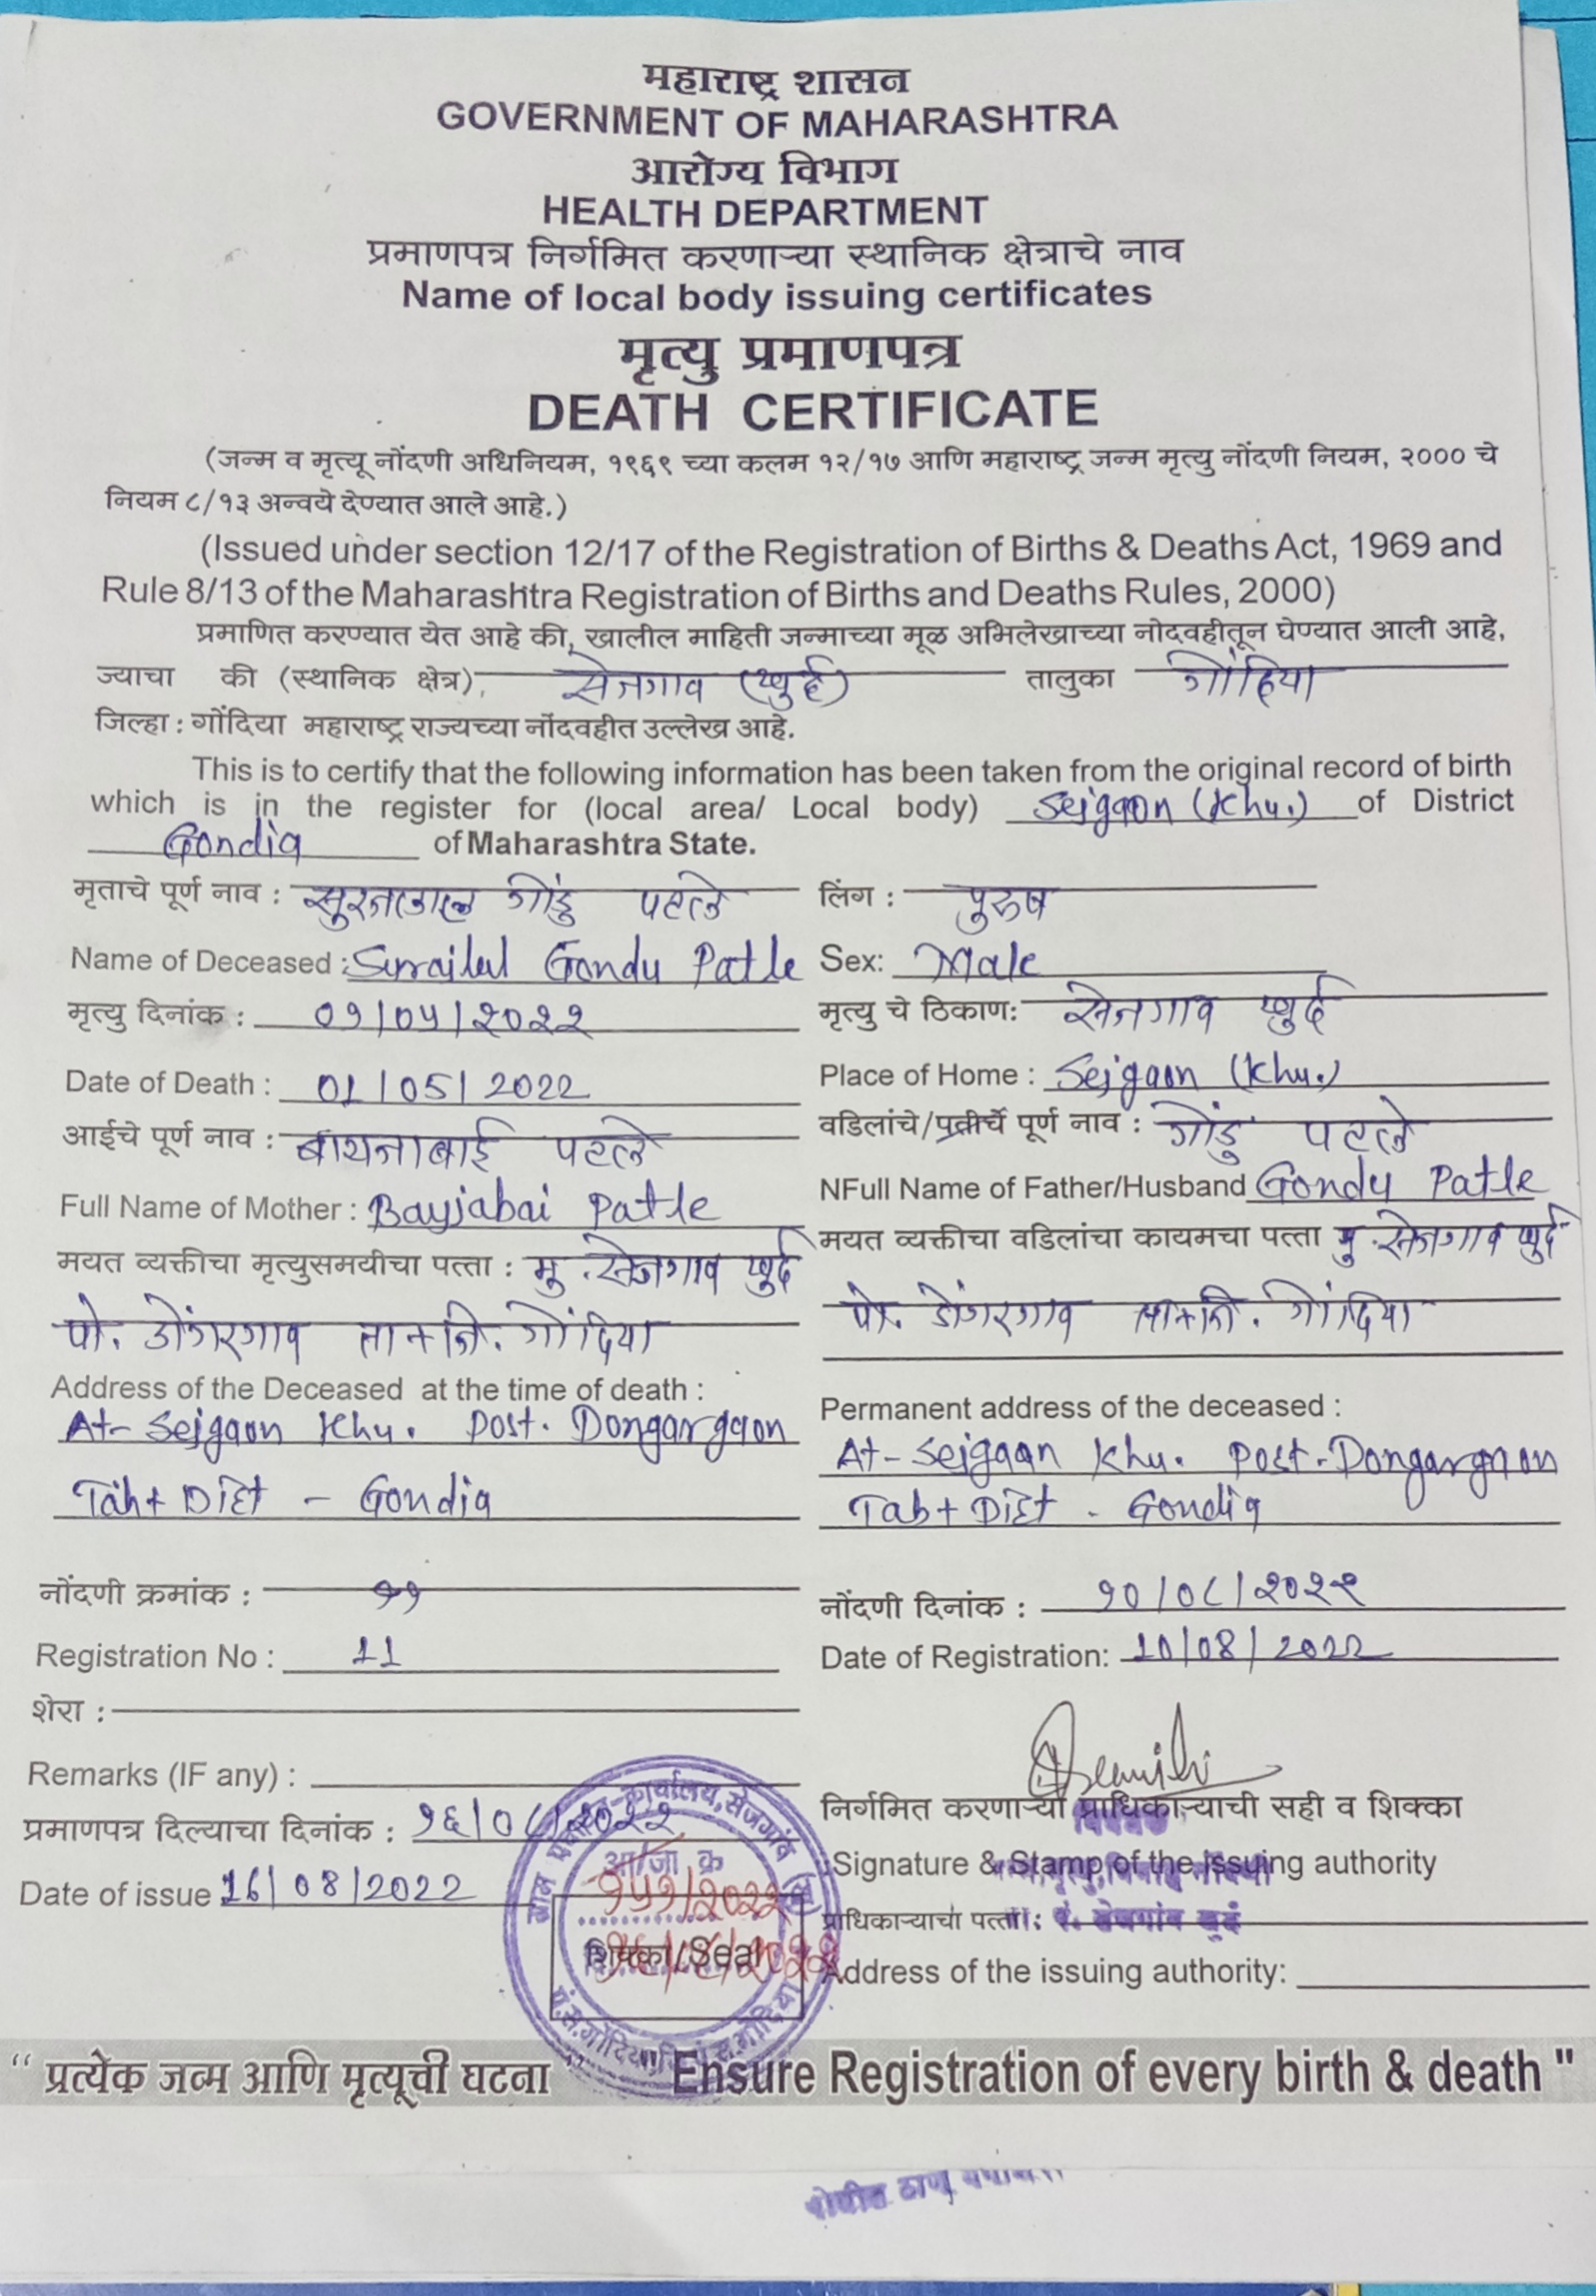 महाराष्ट्र शासन
GOVERNMENT OF MAHARASHTRA
आरोग्य विभाग
HEALTH DEPARTMENT
प्रमाणपत्र निर्गमित करणाऱ्या स्थानिक क्षेत्राचे नाव
Name of local body issuing certificates
मृत्यु प्रमाणपत्र
DEATH CERTIFICATE
(जन्म व मृत्यू नोंदणी अधिनियम, १९६९ च्या कलम १२/१७ आणि महाराष्ट्र जन्म मृत्यु नोंदणी नियम, २००० चे
नियम ८/१३ अन्वये देण्यात आले आहे.)
(Issued under section 12/17 of the Registration of Births & Deaths Act, 1969 and
Rule 8/13 of the Maharashtra Registration of Births and Deaths Rules, 2000)
प्रमाणित करण्यात येत आहे की, खालील माहिती जन्माच्या मूळ अभिलेखाच्या नोदवहीतून घेण्यात आली आहे,
ज्याचा की (स्थानिक क्षेत्र), सेजगाव (खुर्द) तालुका गोंदिया
जिल्हा : गोंदिया महाराष्ट्र राज्यच्या नोंदवहीत उल्लेख आहे.
This is to certify that the following information has been taken from the original record of birth
which is in the register for (local area/ Local body) Sejgaon (Khu.) of District
Gondia of Maharashtra State.
मृताचे पूर्ण नाव : सुरजलाल गोंडु पटले लिंग : पुरुष
Name of Deceased : Surajlal Gondu Patle Sex: Male
मृत्यु दिनांक : ०१/०५/२०२२ मृत्यु चे ठिकाण: सेजगाव खुर्द
Date of Death : 01/05/2022 Place of Home : Sejgaon (Khu.)
आईचे पूर्ण नाव : बायजाबाई पटले वडिलांचे/पतीचे पूर्ण नाव : गोंडु पटले
Full Name of Mother : Bayjabai Patle NFull Name of Father/Husband Gondu Patle
मयत व्यक्तीचा मृत्युसमयीचा पत्ता : मु. सेजगाव खुर्द मयत व्यक्तीचा वडिलांचा कायमचा पत्ता मु. सेजगाव खुर्द
पो. डोंगरगाव ता+जि. गोंदिया पो. डोंगरगाव ता+जि. गोंदिया
Address of the Deceased at the time of death : Permanent address of the deceased :
At- Sejgaon Khu. Post. Dongargaon At- Sejgaon Khu. Post-Dongargaon
Tah+ Dist - Gondia Tah+ Dist - Gondia
नोंदणी क्रमांक : ११ नोंदणी दिनांक : १०/०८/२०२२
Registration No : 11 Date of Registration: 10/08/2022
शेरा :
Remarks (IF any) :
प्रमाणपत्र दिल्याचा दिनांक : १६/०८/२०२२ निर्गमित करणाऱ्या प्राधिकाऱ्याची सही व शिक्का
Date of issue 16/08/2022 Signature & Stamp of the issuing authority
आ/जा क्र
शिक्का/Seal
प्राधिकाऱ्याचा पत्ता :
Address of the issuing authority:
“ प्रत्येक जन्म आणि मृत्यूची घटना ” " Ensure Registration of every birth & death "